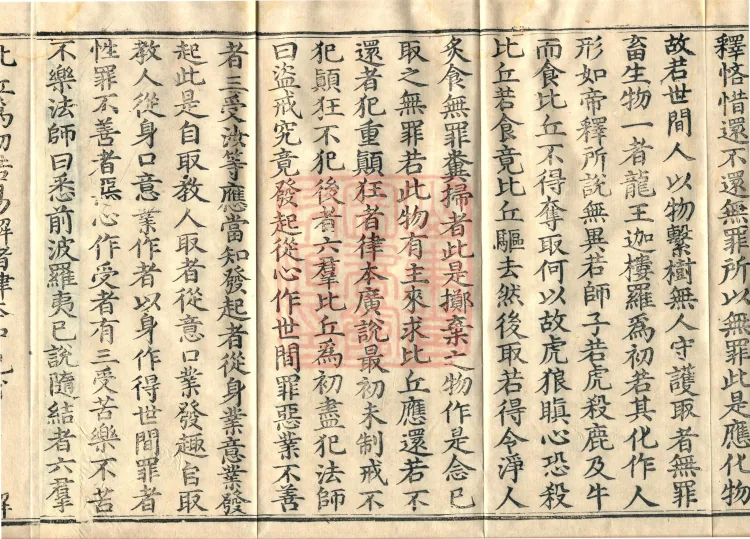 釋悋惜還不還無罪所以無罪此是應化物
故若世間人以物繫樹無人守護取者無罪
畜生物一者龍王迦樓羅爲初若其化作人
形如帝釋所說無異若師子若虎殺鹿及牛
而食比丘不得奪取何以故虎狼瞋心恐殺
比丘若食竟比丘驅去然後取若得令淨人
炙食無罪糞掃者此是擲棄之物作是念已
取之無罪若此物有主來求比丘應還若不
還者犯重顛狂者律本廣說最初未制戒不
犯顛狂不犯後者六羣比丘爲初盡犯法師
曰盜戒究竟發起從心作世間罪惡業不善
者三受汝等應當知發起者從身業意業發
起此是自取教人取者從意口業發趣自取
教人從身口意業作者以身作得世間罪者
性罪不善者惡心作受者有三受苦樂不苦
不樂法師曰悉前波羅夷已說隨結者六羣